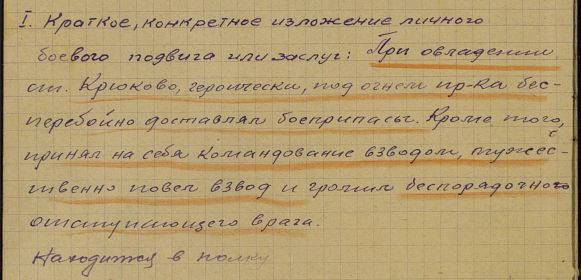 I. Краткое, конкретное изложение личного
боевого подвига или заслуг: При овладении
ст. Крюково, героически, под огнем пр-ка бес-
перебойно доставлял боеприпасы. Кроме того,
принял на себя командование взводом, мужес-
твенно повел взвод и громил беспорядочного
отступающего врага.
Находится в полку